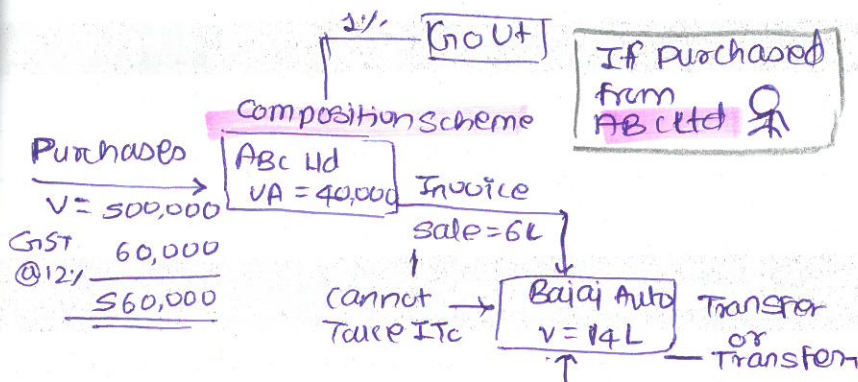 1%
Govt
If purchased
from
ABC Ltd
Composition scheme
Purchases
ABC Ltd
VA = 40,000
Invoice
V = 500,000
Sale = 6L
GST 60,000
@12%
560,000
cannot
Take ITC
Bajaj Auto
V = 14L
Transfer
or
Transfer